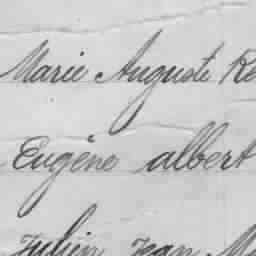 Marie Auguste Re
Eugène albert
Julien Jean M